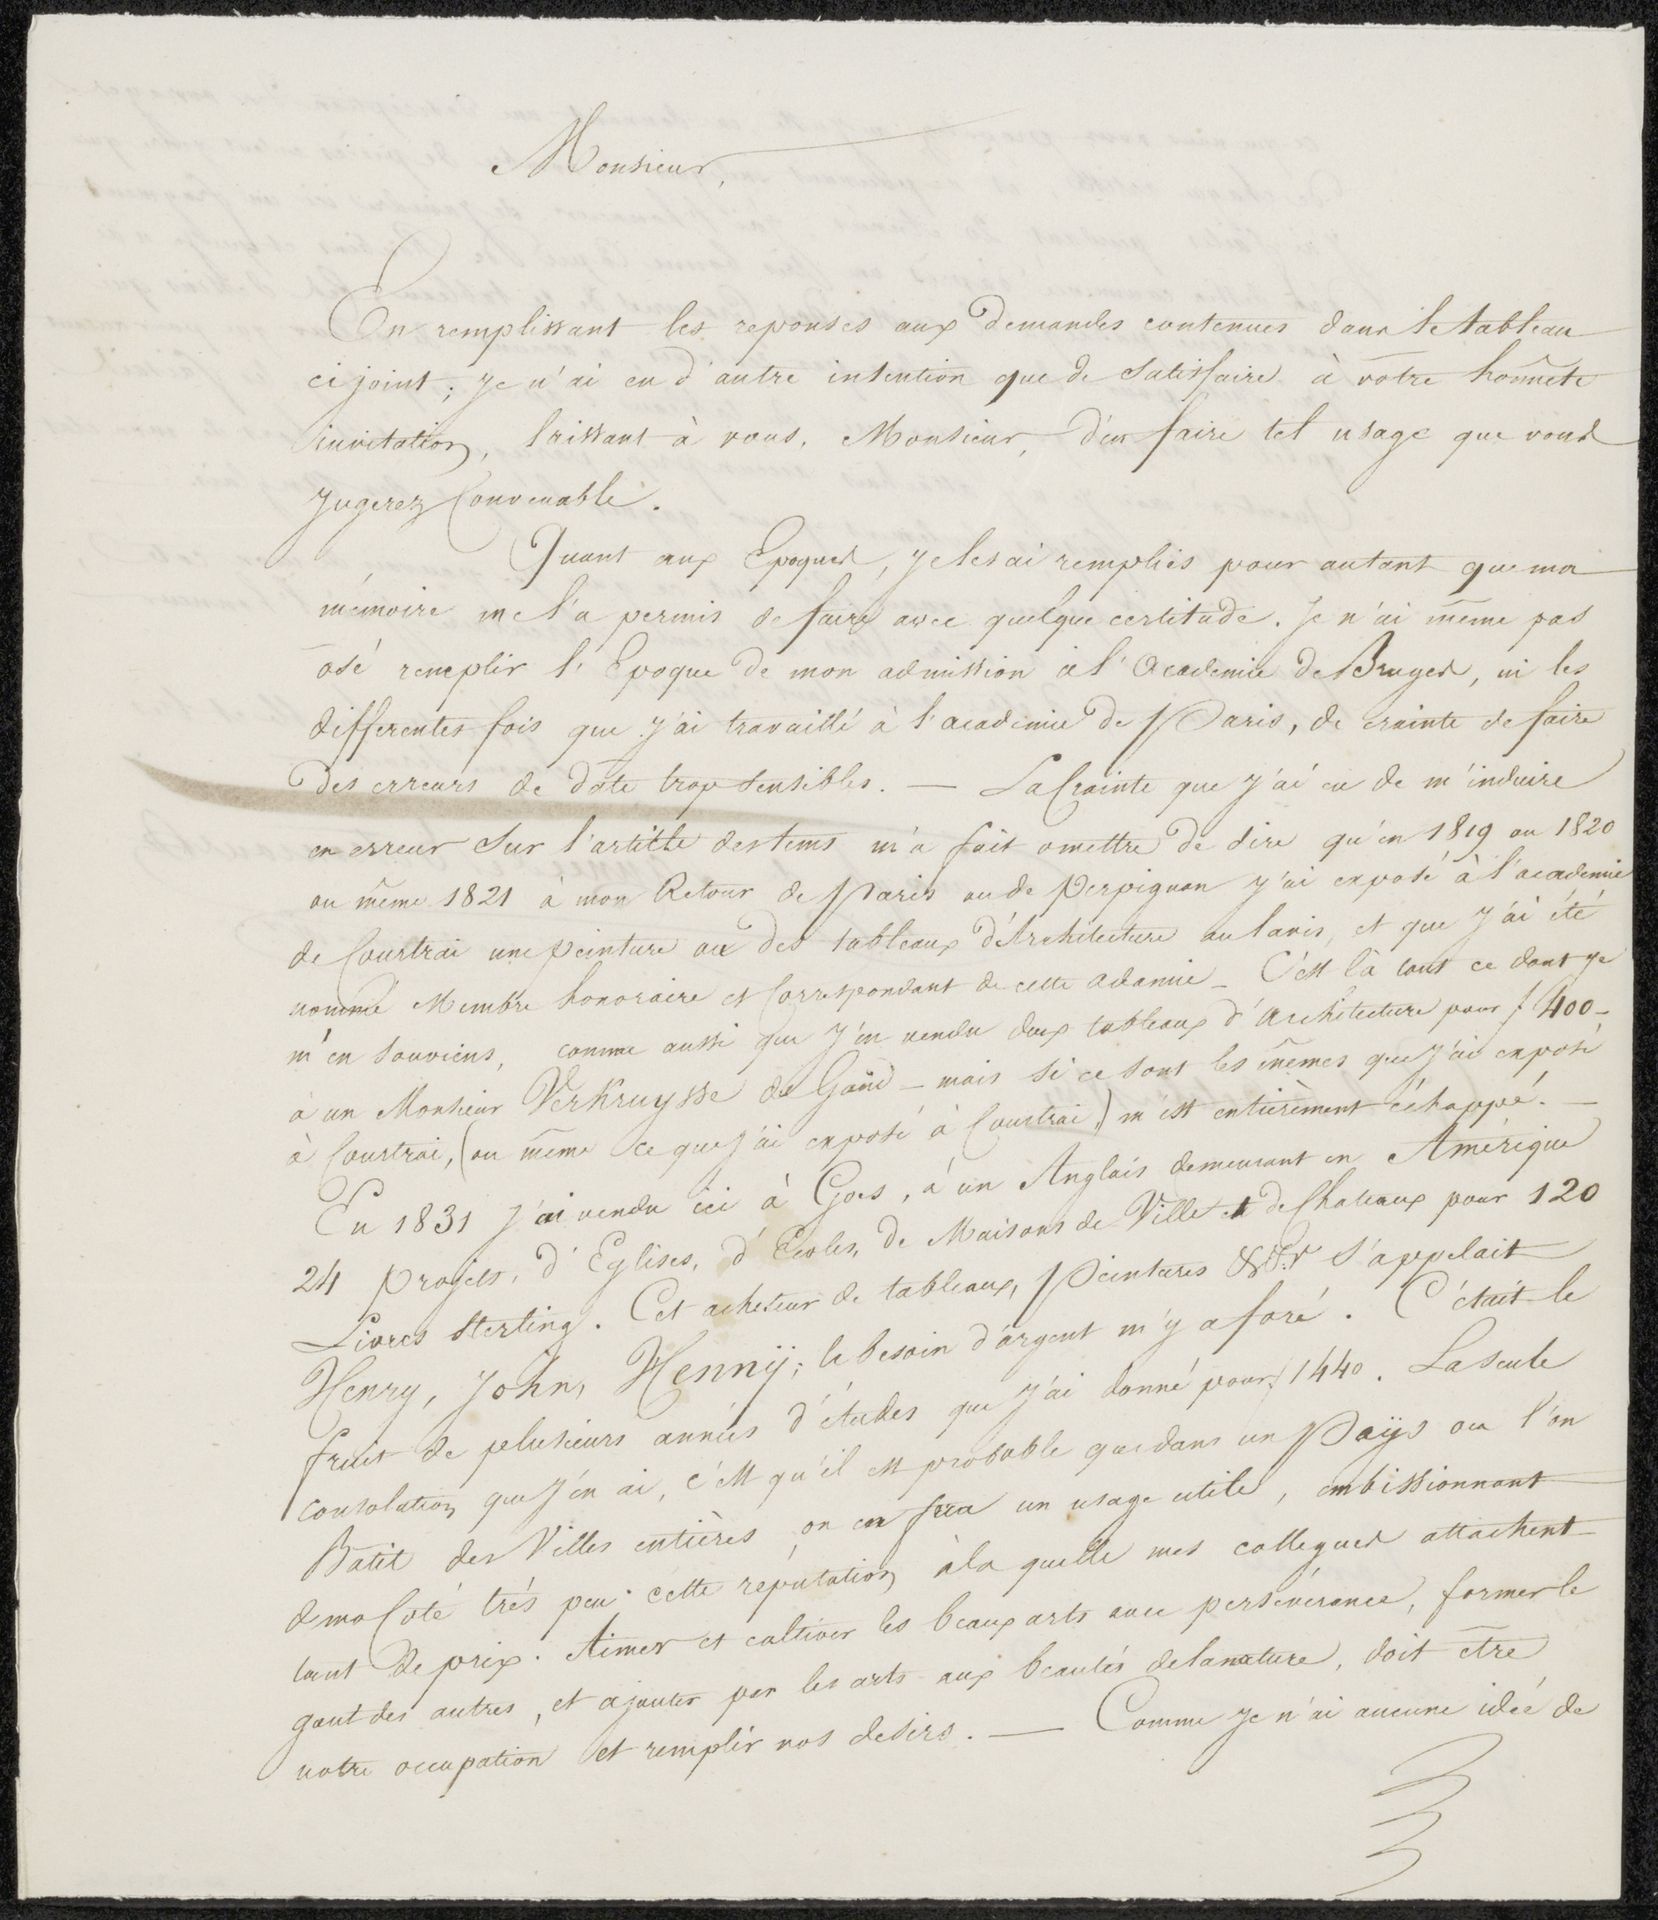 Monsieur,
En remplissant les reponses aux demandes contenues dans le tableau
ci joint; je n'ai eu d'autre intention que de satisfaire à votre honnete
invitation, laissant à vous, Monsieur, d'en faire tel usage que vous
jugerez Convenable.
Quant aux Epoques, je les ai remplies pour autant que ma
mémoire me l'a permis de faire avec quelque certitude. Je n'ai même pas
osé remplir l'Epoque de mon admission à l'Academie de Bruges, ni les
differentes fois que j'ai travaillé à l'academie de Paris, de crainte de faire
des erreurs de date trop sensibles. — La Crainte que j'ai eu de m'induire
en erreur sur l'article des tems m'a fait omettre de dire qu'en 1819 ou 1820
ou même 1821 à mon Retour de Paris ou de Perpignan j'ai exposé à l'academie
de Courtrai une peinture ou des tableaux d'Architecture au lavis, et que j'ai été
nommé Membre honoraire et Correspondant de cette adamie — C'est là tout ce dont je
m'en souviens, comme aussi que j'en vendu deux tableaux d'Architecture pour f 400 —
à un Monsieur VerKruysse de Gand — mais si ce sont les mêmes que j'ai exposé
à Courtrai, (ou même ce que j'ai exposé à Courtrai,) m'est entièrement échappé. —
En 1831 j'ai vendu ici à Goes, à un Anglais demeurant en Amérique
24 projets, d'Eglises, d'Ecoles, de Maisons de Ville et de Chateaux pour 120
Livres sterling. Cet acheteur de tableaux, Peintures &&r s'appelait
Henry, John, Hennÿ; le besoin d'argent m'y a foré. C'était le
fruit de plusieurs années d'études que j'ai donné pour f 1440. La seule
consolation que j'en ai, c'est qu'il est probable que dans un Païjs ou l'on
Batit des Villes entières, on en fera un usage utile, embissionnant
de mo Coté très peu cette réputation à la quelle mes collegues attachent
tant de prix. Aimer et cultiver les beaux arts avec persévérance, former le
gout des autres, et ajouter par les arts aux beautés de la nature, doit être
notre occupation et remplir nos desirs. — Comme je n'ai aucune idée de